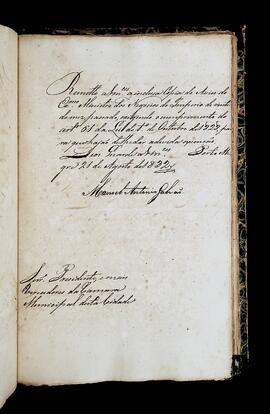 Remetto a Vm.ces a inclusa Copia do Aviso do
Ex.mo Ministro dos Negocios do Imperio de vinte
do mez passado, exigindo o cumprimento do
art.º 61 da Lei do 1º de Outubro de 1828, pa
ra que haja de
Deos Guarde a Vm.ces Porto Ale
gre 21 de Agosto de 1832
Manoel Antonio Galvão
Snr.s Presidente, e mais
Vereadores da Camara
Municipal desta Cidade